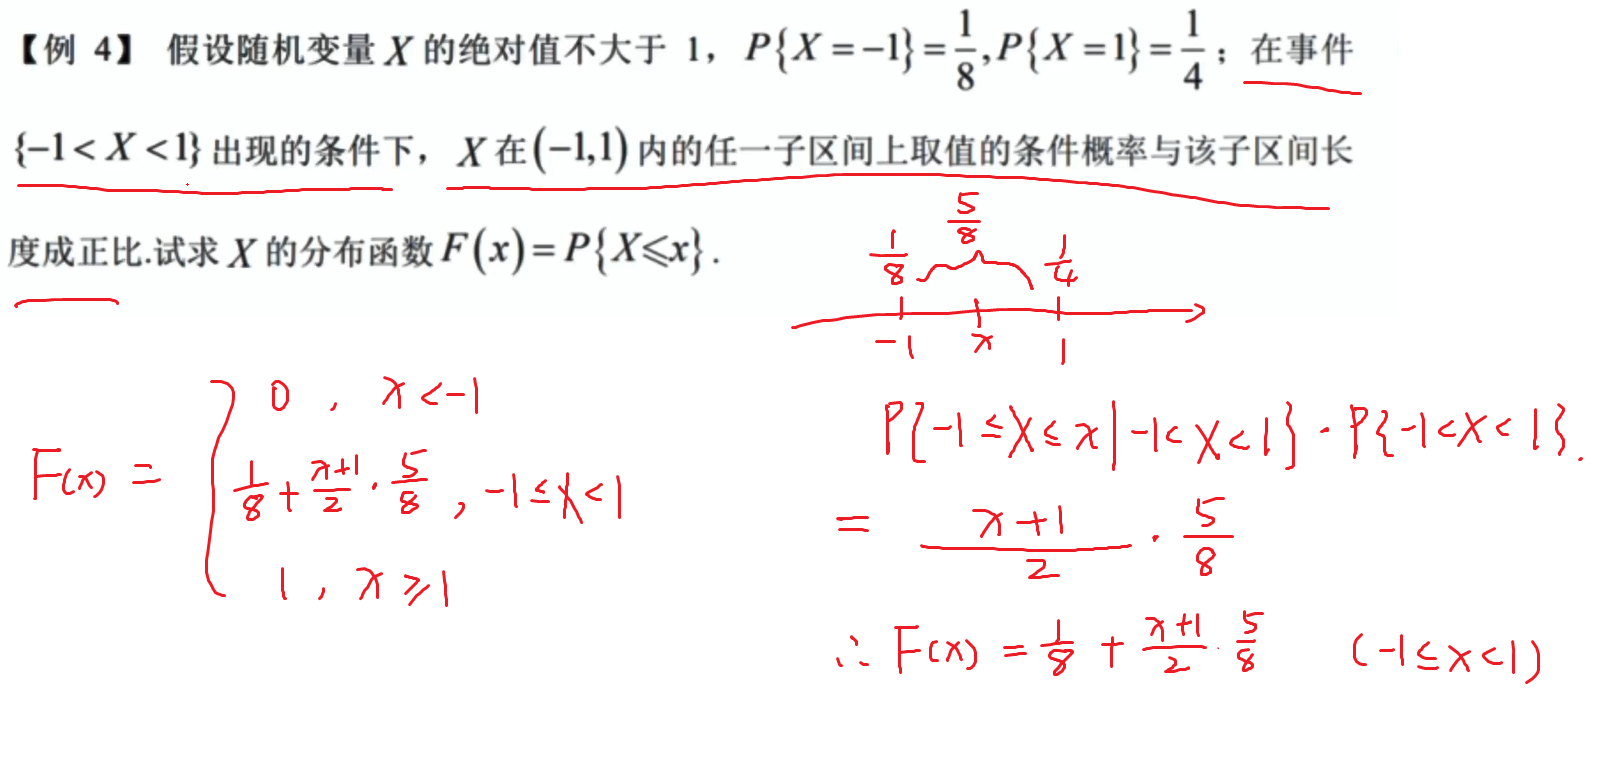 【例 4】 假设随机变量 X 的绝对值不大于 1，P{X=-1}=1/8,P{X=1}=1/4；在事件
{-1<X<1} 出现的条件下，X 在(-1,1)内的任一子区间上取值的条件概率与该子区间长
度成正比.试求 X 的分布函数 F(x)=P{X≤x}.
1/8 5/8 1/4
-1 x 1
F(x) = { 0 , x<-1
1/8 + (x+1)/2 · 5/8 , -1≤x<1
1 , x≥1
P{-1≤X≤x|-1<X<1} · P{-1<X<1}.
= (x+1)/2 · 5/8
∴ F(x) = 1/8 + (x+1)/2 · 5/8 (-1≤x<1)